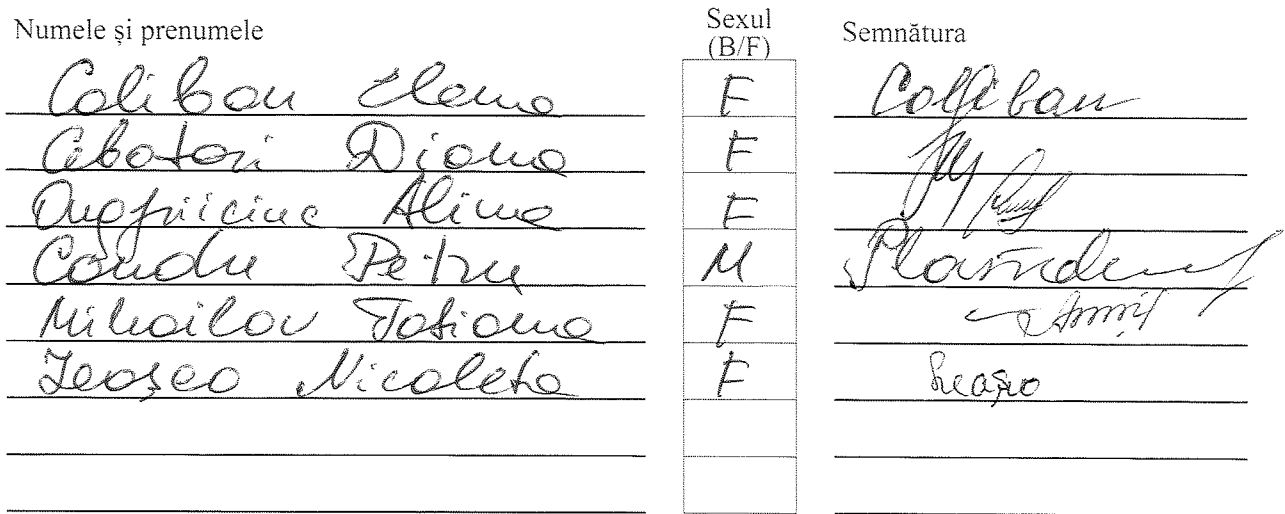 Numele și prenumele Sexul (B/F) Semnătura
Caliban Elena F Caliban
Cebotari Diana F
Onofriiciuc Alina F
Condu Petru M
Mihailov Tatiana F
Leașco Nicoleta F